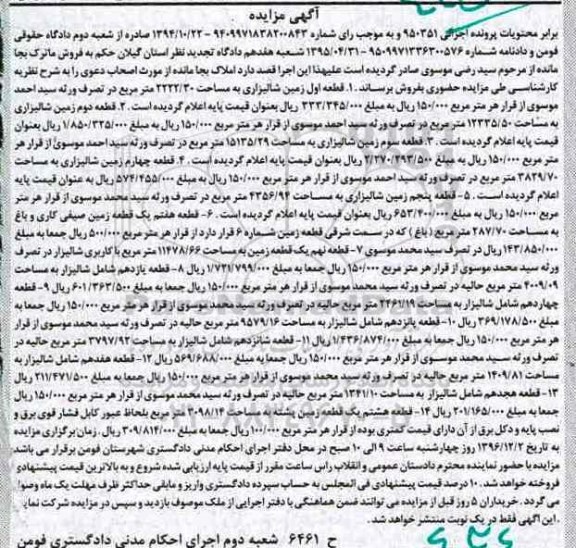 آگهی مزایده
برابر محتویات پرونده اجرائی ۹۵۰۳۵۱ و به موجب رای شماره ۹۴۰۹۹۷۱۸۳۸۲۰۰۸۴۳ - ۱۳۹۴/۱۰/۲۲ صادره از شعبه دوم دادگاه حقوقی
فومن و دادنامه شماره ۹۵۰۹۹۷۱۳۳۶۳۰۰۵۷۶ - ۱۳۹۵/۰۴/۳۱ شعبه هفدهم دادگاه تجدید نظر استان گیلان حکم به فروش ماترک بجا
مانده از مرحوم سید رضی موسوی صادر گردیده است علیهذا این اجرا قصد دارد املاک بجا مانده از مورث اصحاب دعوی را به شرح نظریه
کارشناسی طی مزایده حضوری بفروش برساند .۱. قطعه اول زمین شالیزاری به مساحت ۲۲۲۲/۳۰ متر مربع در تصرف ورثه سید احمد
موسوی از قرار هر متر مربع ۱۵۰/۰۰۰ ریال به مبلغ ۳۳۳/۳۴۵/۰۰۰ ریال بعنوان قیمت پایه اعلام گردیده است . ۲. قطعه دوم زمین شالیزاری
به مساحت ۱۲۳۳۵/۵۰ متر مربع در تصرف ورثه سید احمد موسوی از قرار هر متر مربع ۱۵۰/۰۰۰ ریال به مبلغ ۱/۸۵۰/۳۲۵/۰۰۰ ریال بعنوان
قیمت پایه اعلام گردیده است . ۳. قطعه سوم زمین شالیزاری به مساحت ۱۵۱۳۵/۲۹ متر مربع در تصرف ورثه سید احمد موسوی از قرار هر
متر مربع ۱۵۰/۰۰۰ ریال به مبلغ ۲/۲۷۰/۲۹۳/۵۰۰ ریال بعنوان قیمت پایه اعلام گردیده است . ۴. قطعه چهارم زمین شالیزاری به مساحت
۳۸۲۹/۷۰ متر مربع در تصرف ورثه سید احمد موسوی از قرار هر متر مربع ۱۵۰/۰۰۰ ریال به مبلغ ۵۷۴/۴۵۵/۰۰۰ ریال به عنوان قیمت پایه
اعلام گردیده است . ۵- قطعه پنجم زمین شالیزاری به مساحت ۴۳۵۶/۹۴ متر مربع در تصرف ورثه سید محمد موسوی از قرار هر متر
مربع ۱۵۰/۰۰۰ ریال به مبلغ ۶۵۳/۴۰۰/۰۰۰ ریال به عنوان قیمت پایه اعلام گردیده است . ۶- قطعه هفتم یک قطعه زمین صیفی کاری و باغ
به مساحت ۲۸۷/۷۰ متر مربع ( باغ ) که در سمت شرقی قطعه زمین شماره ۶ قرار دارد از قرار هر متر مربع ۵۰۰/۰۰۰ ریال جمعا به مبلغ
۱۴۳/۸۵۰/۰۰۰ ریال در تصرف سید محمد موسوی ۷- قطعه نهم یک قطعه زمین به مساحت ۱۱۴۷۸/۶۶ متر مربع با کاربری شالیزار در تصرف
ورثه سید محمد موسوی از قرار هر متر مربع ۱۵۰/۰۰۰ ریال جمعا به مبلغ ۱/۷۲۱/۷۹۹/۰۰۰ ریال ۸- قطعه یازدهم شامل شالیزار به مساحت
۴۰۰۹/۰۹ متر مربع حالیه در تصرف ورثه سید محمد موسوی از قرار هر متر مربع ۱۵۰/۰۰۰ ریال جمعا به مبلغ ۶۰۱/۳۶۳/۵۰۰ ریال ۹- قطعه
چهاردهم شامل شالیزار به مساحت ۲۴۶۱/۱۹ متر مربع حالیه در تصرف ورثه سید محمد موسوی از قرار هر متر مربع ۱۵۰/۰۰۰ ریال جمعا به
مبلغ ۳۶۹/۱۷۸/۵۰۰ ریال ۱۰- قطعه پانزدهم شامل شالیزار به مساحت ۹۵۷۹/۱۶ متر مربع حالیه در تصرف ورثه سید محمد موسوی از قرار
هر متر مربع ۱۵۰/۰۰۰ ریال جمعا به مبلغ ۱/۴۳۶/۸۷۴/۰۰۰ ریال ۱۱- قطعه شانزدهم شامل شالیزار به مساحت ۳۷۹۷/۹۲ متر مربع حالیه در
تصرف ورثه سید محمد موسوی از قرار هر متر مربع ۱۵۰/۰۰۰ ریال جمعا به مبلغ ۵۶۹/۶۸۸/۰۰۰ ریال ۱۲- قطعه هفدهم شامل شالیزار به
مساحت ۱۴۰۹/۸۱ متر مربع حالیه در تصرف ورثه سید محمد موسوی از قرار هر متر مربع ۱۵۰/۰۰۰ ریال جمعا به مبلغ ۲۱۱/۴۷۱/۵۰۰ ریال
۱۳- قطعه هجدهم شامل شالیزار به مساحت ۱۳۴۱/۱۰ متر مربع حالیه در تصرف ورثه سید محمد موسوی از قرار هر متر مربع ۱۵۰/۰۰۰ ریال
جمعا به مبلغ ۲۰۱/۱۶۵/۰۰۰ ریال ۱۴- قطعه هشتم یک قطعه زمین پشته به مساحت ۳۰۹۸/۱۴ متر مربع بلحاظ عبور کابل فشار قوی برق و
نصب پایه و دکل برق از آن دارای قیمت کمتری بوده از قرار هر متر مربع ۱۰۰/۰۰۰ ریال جمعا به مبلغ ۳۰۹/۸۱۴/۰۰۰ ریال .زمان برگزاری مزایده
به تاریخ ۱۳۹۶/۱۲/۲ روز چهارشنبه ساعت ۹ الی ۱۰ صبح در محل دفتر اجرای احکام مدنی دادگستری شهرستان فومن برقرار می باشد.
مزایده با حضور نماینده محترم دادستان عمومی و انقلاب راس ساعت مقرر از قیمت پایه ارزیابی شده شروع و به بالاترین قیمت پیشنهادی
فروخته خواهد شد. ۱۰ درصد قیمت پیشنهادی فی المجلس به حساب سپرده دادگستری واریز و مابقی حداکثر ظرف مهلت یک ماه وصول
می گردد .خریداران ۵ روز قبل از مزایده می توانند ضمن هماهنگی با دفتر اجرایی از ملک موصوف بازدید و سپس در مزایده شرکت نمایند
.این آگهی فقط در یک نوبت منتشر خواهد شد.
ح ۶۴۶۱ شعبه دوم اجرای احکام مدنی دادگستری فومن